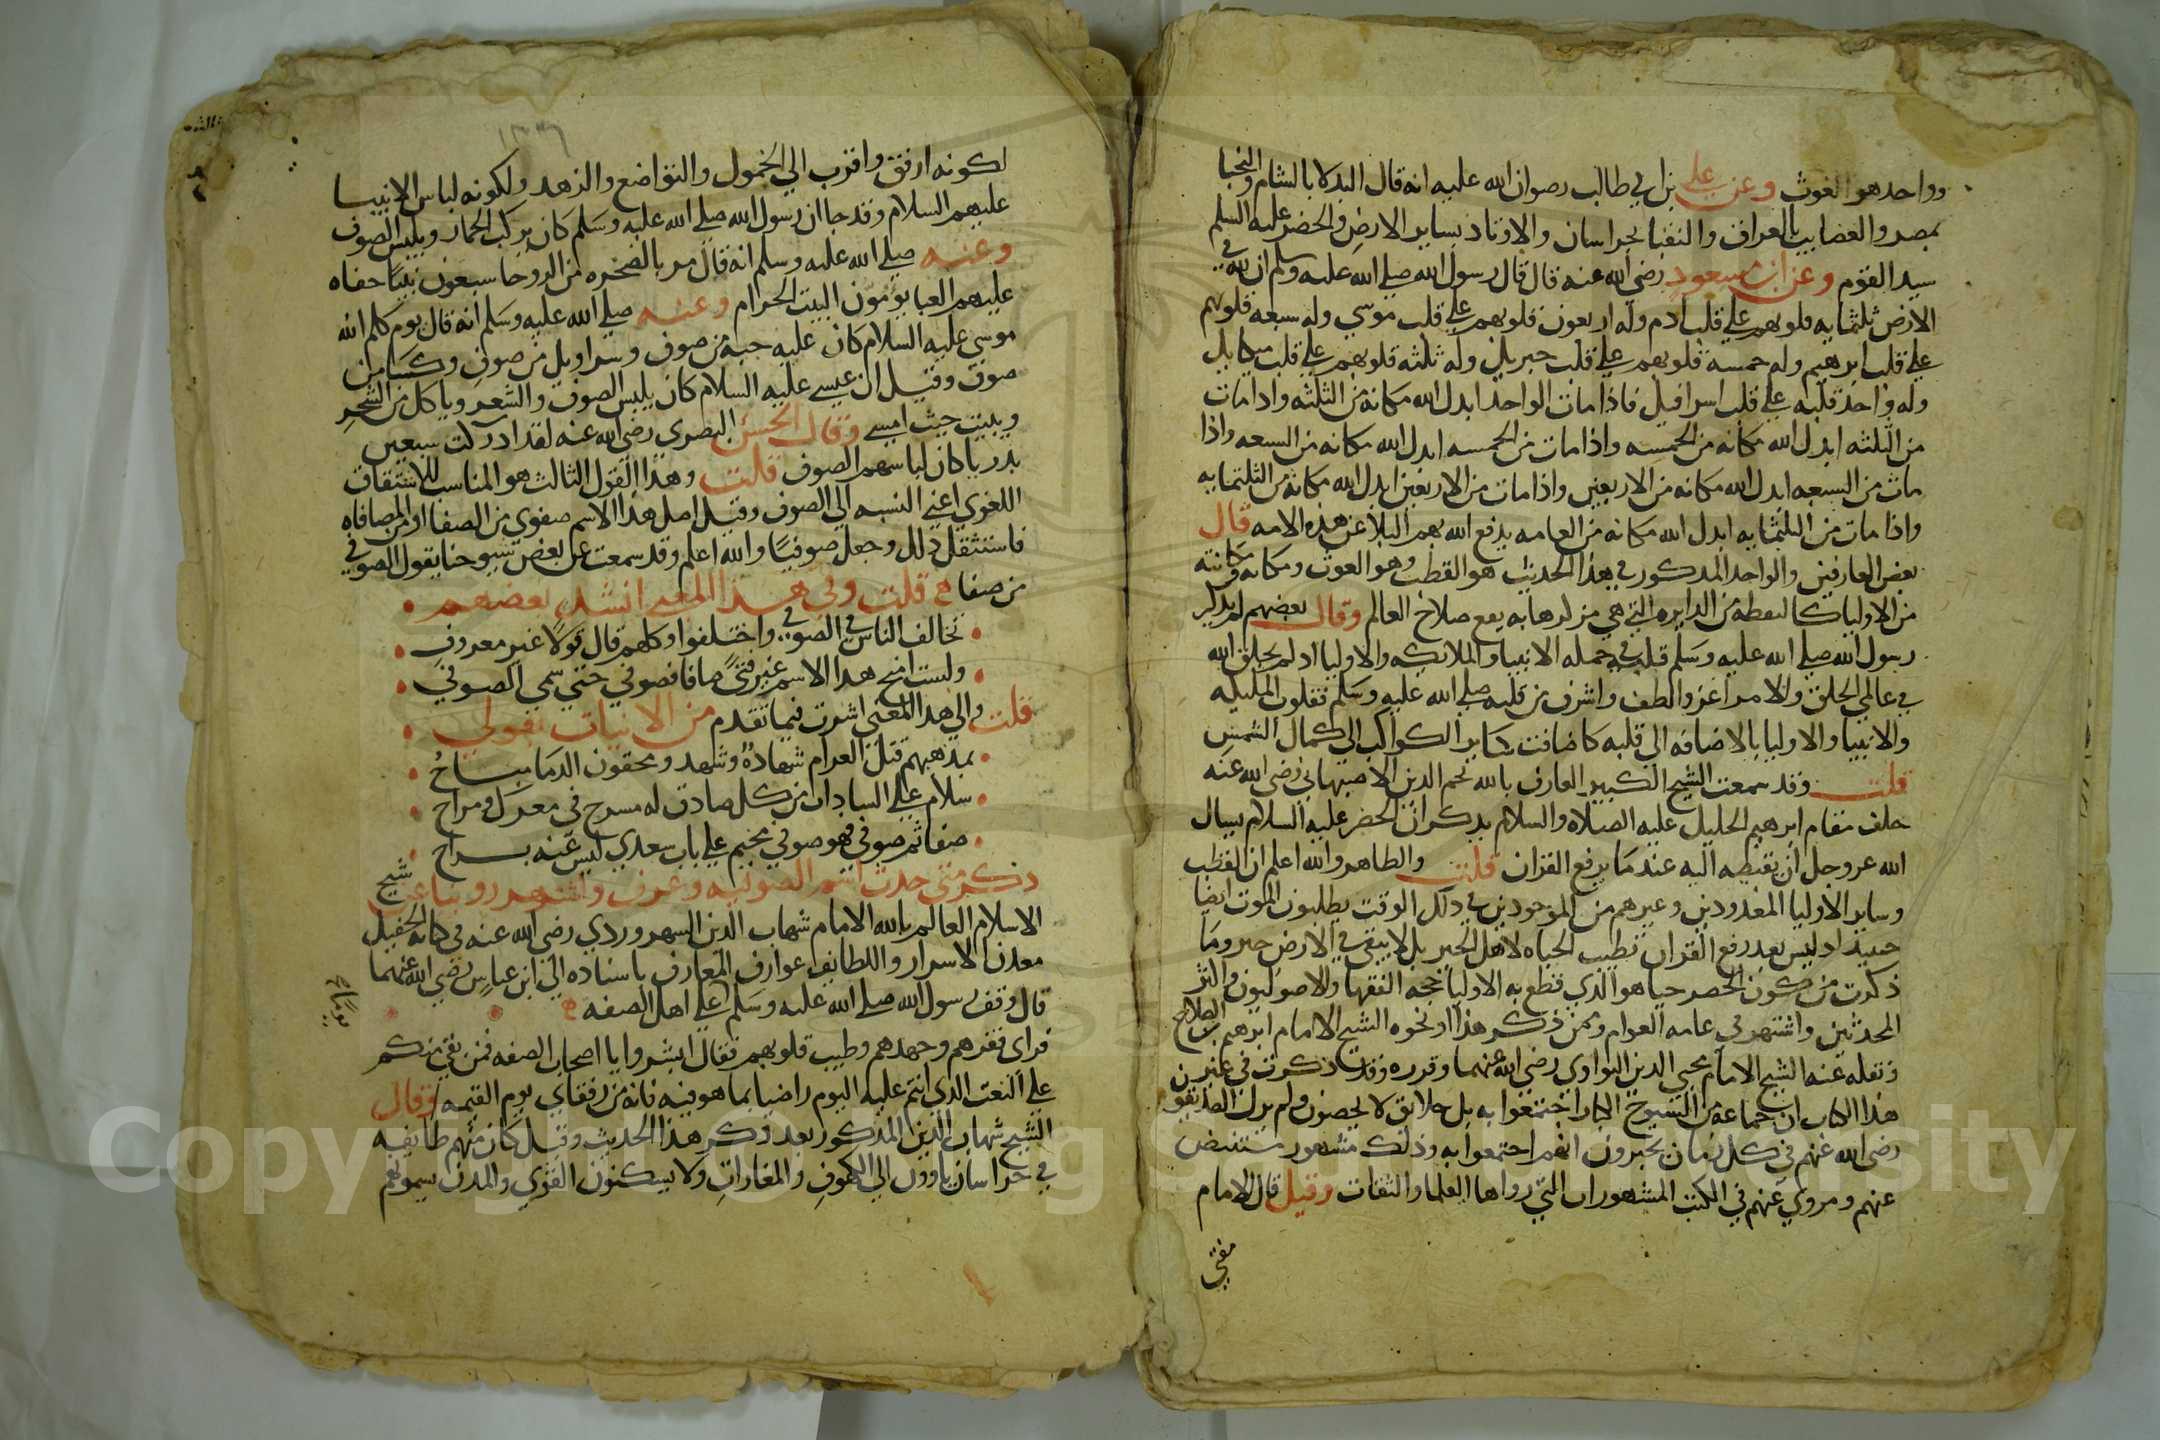 وواحد هو الغوث وعن علي بن ابي طالب رضوان الله عليه انه قال البدلا بالشام والنجبا
بمصر والعصايب بالعراق والنقبا بخراسان والاوتاد بساير الارض والخضر عليه السلم
سيد القوم وعن ابن مسعود رضي الله عنه قال قال رسول الله صلى الله عليه وسلم ان لله في
الارض ثلثمايه قلوبهم علي قلب ادم وله اربعون قلوبهم علي قلب موسي وله سبعه قلوبهم
علي قلب ابرهيم وله خمسه قلوبهم علي قلب جبريل وله ثلثه قلوبهم علي قلب ميكايل
وله واحد قلبه علي قلب اسرافيل فاذا مات الواحد ابدل الله مكانه من الثلثه واذا مات
من الثلثه ابدل الله مكانه من الخمسه واذا مات من الخمسه ابدل الله مكانه من السبعه واذا
مات من السبعه ابدل الله مكانه من الاربعين واذا مات من الاربعين ابدل الله مكانه من الثلثمايه
واذا مات من الثلثمايه ابدل الله مكانه من العامه يدفع الله بهم البلا عن هذه الامه قال
بعض العارفين والواحد المذكور في هذا الحديث هو القطب وهو الغوث ومكانه ومكانته
من الاوليا كالنقطه من الدايره التي هي مركزها به يقع صلاح العالم وقال بعضهم لم يذكر
رسول الله صلى الله عليه وسلم قلبه في جمله الانبيا والملايكه والاوليا اذ لم يخلق الله
في عالمي الخلق والامر اعز والطف واشرف من قلبه صلى الله عليه وسلم فقلوب المليكه
والانبيا والاوليا بالاضافه الي قلبه كاضافت ساير الكواكب الي كمال الشمس
قلت وقد سمعت الشيخ الكبير العارف بالله نجم الدين الاصبهاني رضي الله عنه
خلف مقام ابرهيم الخليل عليه الصلاه والسلام يذكر ان الخضر عليه السلام يسال
الله عز وجل ان يقبضه اليه عندما يرفع القران قلت والظاهر والله اعلم ان القطب
وساير الاوليا المعدودين وغيرهم من الموجودين في ذلك الوقت يطلبون الموت ايضا
حينيذ اذ ليس بعد رفع القران تطيب الحياه لاهل الخير بل لا يبقي في الارض خير وما
ذكرت من كون الخضر حيا هو الذي قطع به الاوليا ورجحه الفقها والاصوليون واكثر
المحدثين واشتهر في عامه العوام وممن ذكر هذا او نحوه الشيخ الامام ابو عمرو بن الصلاح
ونقله عنه الشيخ الامام محيي الدين النواوي رضي الله عنهما وقرره وقد ذكرت في غير
هذا الكتاب ان جماعة من الشيوخ الكبار اجتمعوا به بل خلايق لا يحصون ولم يزل الصديقون
رضي الله عنهم في كل زمان يخبرون انهم اجتمعوا به وذلك مشهور مستفيض
عنهم ومروي عنهم في الكتب المشهورات التي رواها العلما والثقات وقيل قال الامام
مفتي
لكونه ارفق واقرب الي الخمول والتواضع والزهد ولكونه لباس الانبيا
عليهم السلام وقد جا ان رسول الله صلى الله عليه وسلم كان يركب الحمار ويلبس الصوف
وعنه صلى الله عليه وسلم انه قال مر بالصخره من الروحا سبعون نبيا حفاه
عليهم العبا يومون البيت الحرام وعنه صلى الله عليه وسلم انه قال يوم كلم الله
موسي عليه السلام كان عليه جبة من صوف وسراويل من صوف وكسا من
صوف وقيل ان عيسي عليه السلام كان يلبس الصوف والشعر وياكل من الشجر
ويبيت حيث امسي وقال الحسن البصري رضي الله عنه لقد ادركت سبعين
بدريا كان لباسهم الصوف قلت وهذا القول الثالث هو المناسب للاشتقاق
اللغوي اعني النسبه الي الصوف وقيل اصل هذا الاسم صفوي من الصفا او من المصافاه
فاستثقل ذلك وجعل صوفيا والله اعلم وقد سمعت عن بعض شيوخنا يقول الصوفي
من صفا قلت وفي هذا المعني انشد بعضهم
تخالف الناس في الصوفي واختلفوا وكلهم قال قولا غير معروف
ولست امنح هذا الاسم غير فتي صافا فصوفي حتي سمي الصوفي
قلت والي هذا المعني اشرت فيما تقدم من الابيات بقولي
بمذهبهم قتل الغرام شهادة وشهد ومحقون الدما مباح
سلام علي السادات من كل صادق له مسرح في معزل ومراح
صفا ثم صوفي فهو صوفي مخيم علي باب سعدي ليس عنه براح
ذكر متي حدث اسم الصوفيه وعرف واشتهر روينا عن شيخ
الاسلام العالم بالله الامام شهاب الدين السهروردي رضي الله عنه في كتابه الحفيل
معدن الاسرار واللطايف عوارف المعارف باسناده الي ابن عباس رضي الله عنهما
قال وقف رسول الله صلى الله عليه وسلم علي اهل الصفه
يوما
فراي فقرهم وجهدهم وطيب قلوبهم فقال ابشروا يا اصحاب الصفه فمن بقي منكم
علي النعت الذي انتم عليه اليوم راضيا بما هو فيه فانه من رفقاي يوم القيمه وقال
الشيخ شهاب الدين المذكور بعد ذكر هذا الحديث وقيل كان منهم طايفه
في خراسان ياوون الي الكهوف والمغارات ولا يسكنون القري والمدن يسمونهم